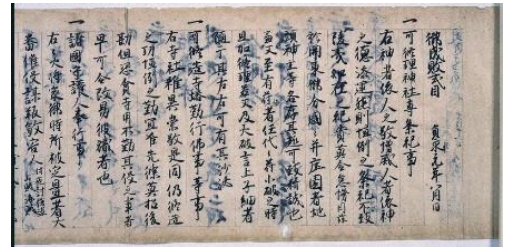 御成敗式目　貞永元年八月日
一可修理神社専祭祀事
右神者依人之敬増威人者依神
之徳添運然則恒例之祭祀不致
陵夷如在之礼奠莫令怠慢因茲
於関東御分国々并庄園者地
頭神主等各存其趣可致精誠也
兼又至有封社者任代々符小破之時
且加修理若又及大破言上子細者
随于其左右可有其沙汰
一可修造寺塔勤行佛事等事
右寺社雖異崇敬是同仍修造
之功恒例之勤宜准先條莫招後
勘但恣貪寺用不勤其役之輩者
早可令改易彼職者也
一諸国守護人奉行事
右々大将家御時所被定置者大
番催促謀叛殺害人付夜討強盗山賊海賊